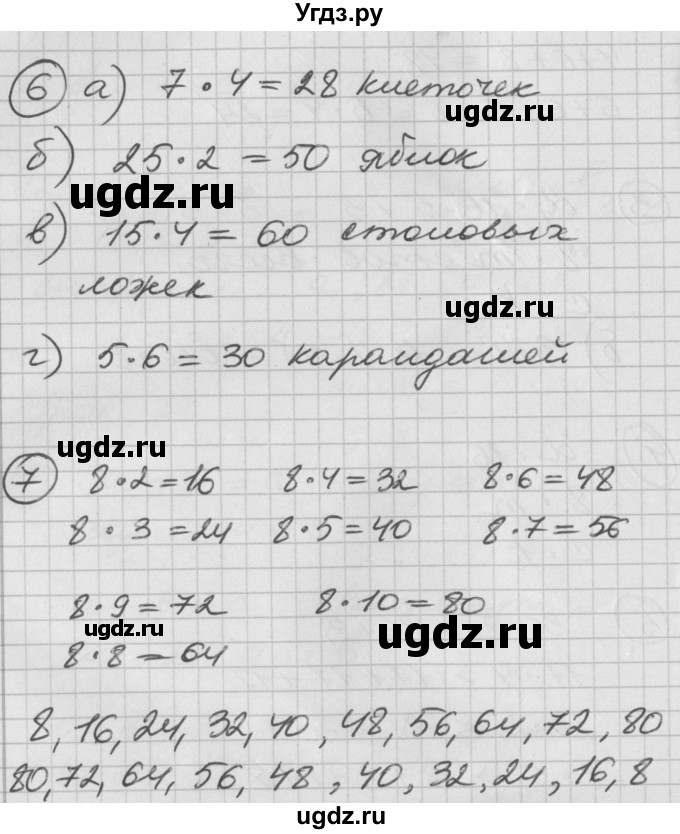 Угдз.ру
6 а) 7 · 4 = 28 клеточек
ugdz.ru
б) 25 · 2 = 50 яблок
ugdz.ru
в) 15 · 4 = 60 столовых
ложек
ugdz.ru
г) 5 · 6 = 30 карандашей
ugdz.ru
7 8 · 2 = 16 8 · 4 = 32 8 · 6 = 48
8 · 3 = 24 8 · 5 = 40 8 · 7 = 56
8 · 9 = 72 8 · 10 = 80
ugdz.ru ugdz.ru
8 · 8 = 64
8, 16, 24, 32, 40, 48, 56, 64, 72, 80
80, 72, 64, 56, 48, 40, 32, 24, 16, 8
ugdz.ru